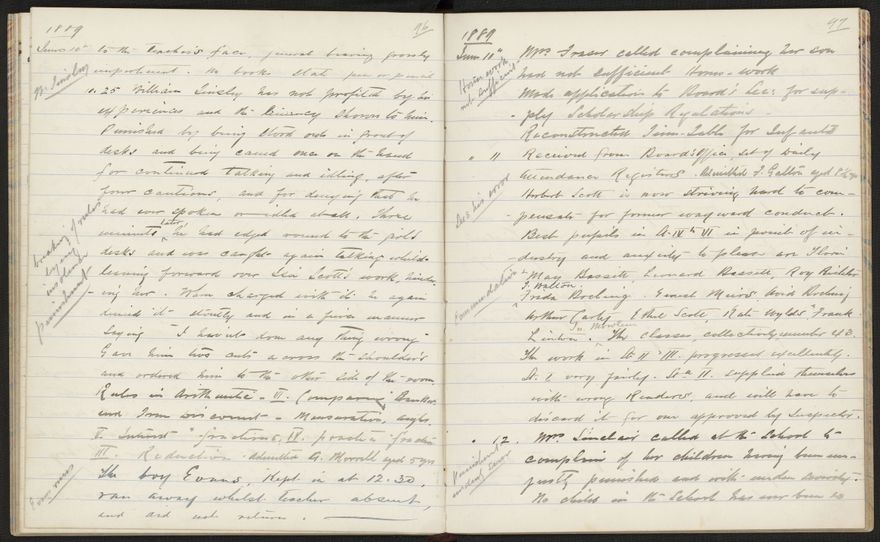 1889
96
June 10th to the teacher's face, general bearing grossly
impertinent. No books slate pen or pencil
Wm. Linsley
10.25 William Linsley has not profited by his
experiences and the leniency shown to him.
Punished by being stood out in front of
desks and being caned once on the hand
for continued talking and idling, after
four cautions, and for denying that he
had ever spoken or idled at all. Three
minutes later he had edged round to the girls
desks and was caught again talking whilst
breaking of rules
lying
insolence
punishment
leaning forward over Scott's work,
ing her. When charged with it he again
denied it stoutly and in a manner
saying I haven't done any thing wrong
Gave him two cuts across the shoulders
and ordered him to the other side of the room
Rules in Arithmetic - VI. Comparing Bankers
and True Discount - Mensuration,
V. Interest fractions, IV. practice
III. Reduction. Admitted A. Morrell aged 5 yrs
Evans runs
The boy Evans, kept in at 12.30,
ran away whilst teacher absent,
and did not return.
1889
97
June 10th Mrs. Fraser called complaining her son
had not sufficient Home-work
Home work
not sufficient
Made application to Board's Sec: for sup-
-ply Scholarship Regulations -
Reconstructed Time-Table for Infants
" 11 Received from Board's Office, set of Daily
Attendance Registers. Admitted J. Galton aged
Sees his error
Herbert Scott is now striving hard to com-
-pensate for former wayward conduct.
Best pupils in St. IV to VI in point of in-
-dustry and anxiety to please are
Commendation
May Bassett, Leonard Bassett, Roy
J. Walton
Freda Ernest Meirs,
Arthur Early, Ethel Scott, Kate Wylds, Frank
Linton. The classes, collectively number 43.
The work in St II & III. progressed excellently.
St. I very fairly. St II. supplied themselves
with wrong Readers, and will have to
discard it for one approved by Inspector.
" 12. Mrs. Sinclair called at the School to
complain of her children having been un-
-justly punished and with undue severity.
Punishment
undue
No child in the School has ever been so